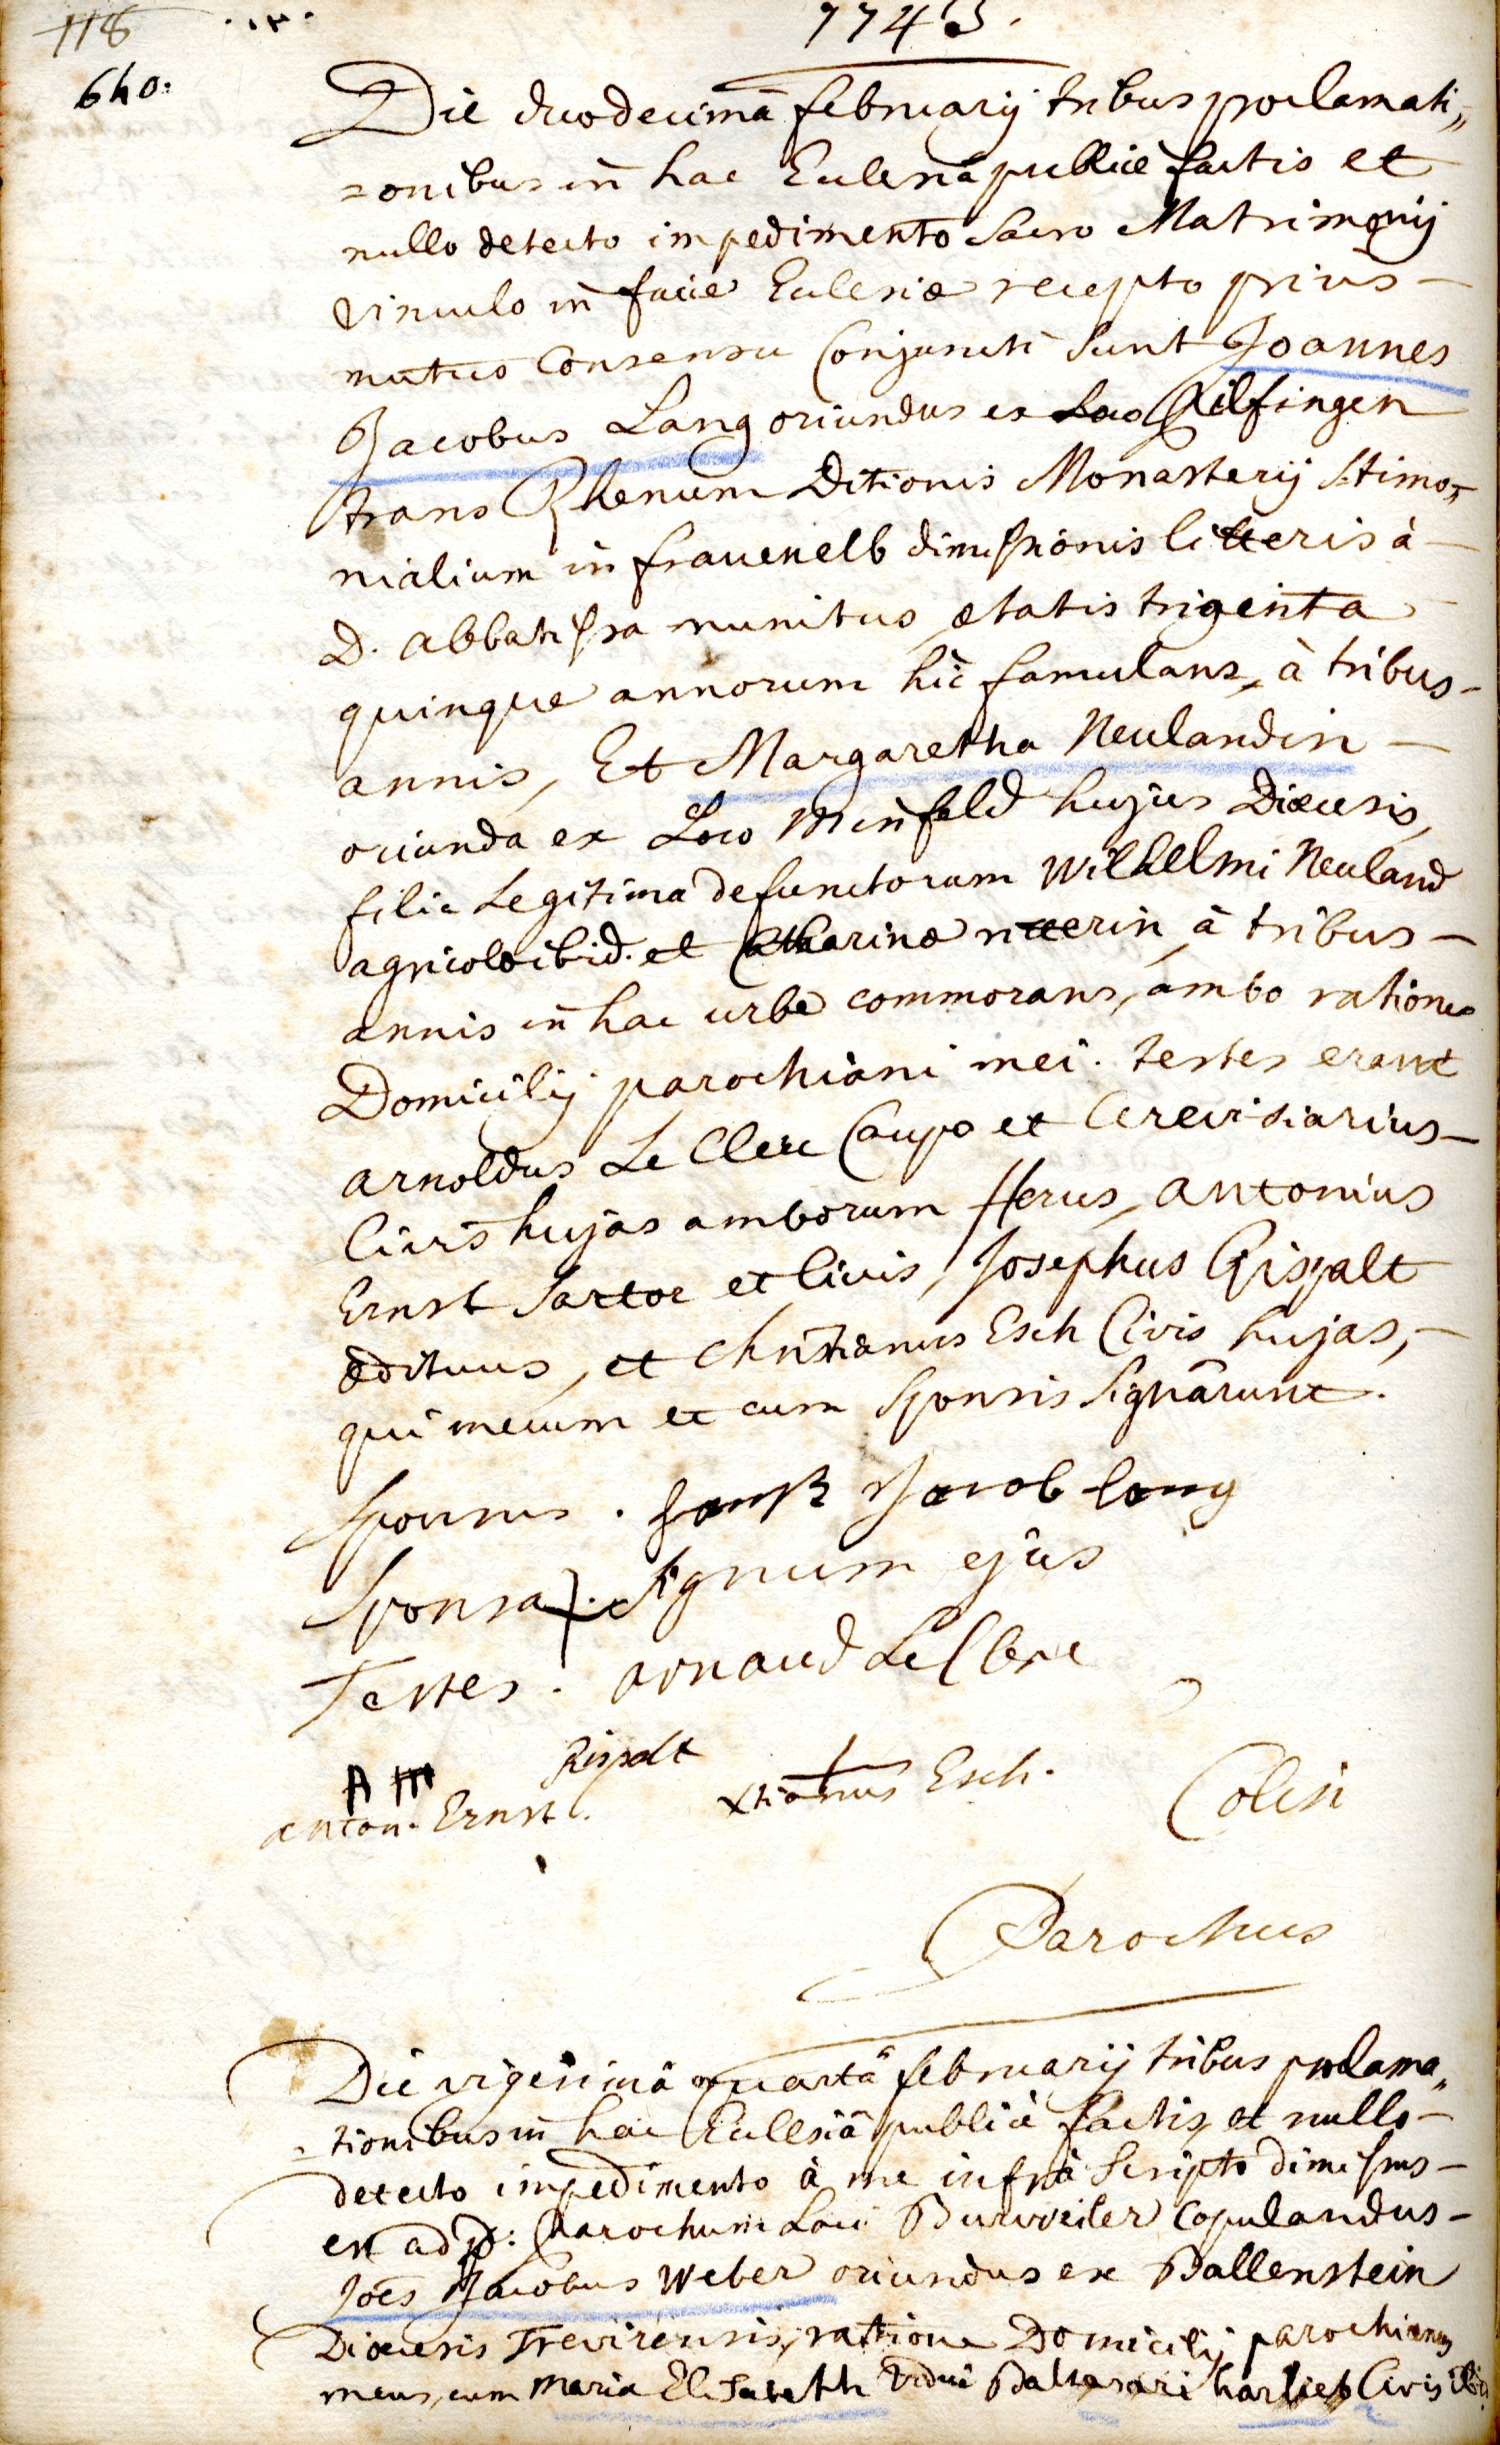 118
640.
1743.
Die duodecimâ februarij tribus proclamati„
=onibus in hac Ecclesiâ publicè factis et
nullo detecto impedimento Sacro Matrimonij
vinculo in facie Ecclesiæ recepto prius —
mutuo Consensu Conjuncti Sunt Joannes
Jacobus Lang oriundus ex Loco Kilfingen
trans Rhenum Ditionis Monasterij Stimo„
nialium in frauenelb dimissionis litteris à —
D. abbatissa munitus ætatis triginta —
quinque annorum hic famulans, à tribus —
annis, Et Margaretha Neulandin —
oriunda ex Loco Minfeld hujus Diœcesis,
filia Legitima defunctorum Wilhelmi Neuland
agricolæ ibid. et Catharinæ ritterin, à tribus —
annis in hac urbe commorans, ambo ratione
Domicilij parochiani mei. testes erant
arnoldus Le Clerc Caupo et Cerevisiarius —
Civis hujas amborum Herus, antonius
Ernst Sartor et Civis, Josephus Rispalt
ædituus, et christianus Esch Civis hujas, —
qui mecum et cum Sponsis Signârunt.
Sponsus . Hanß Jacob lang
Sponsa . Signum ejus
Testes . arnaud Le Clerc
anton. Ernst. Rispalt xtianus Esch. Colin
Parochus
Die vigesimâ quartâ februarij tribus proclama„
=tionibus in hac Ecclesiâ publicè factis, et nullo —
detecto impedimento à me infrà Scripto dimissus —
est ad D: Parochum Loci Burweiler Copulandus —
Joês Jacobus Weber oriundus ex Ballenstein
Diœcesis Trevirensis, ratione Domicilij parochianus
meus, cum Maria Elisabeth Balthasari Civis ibid